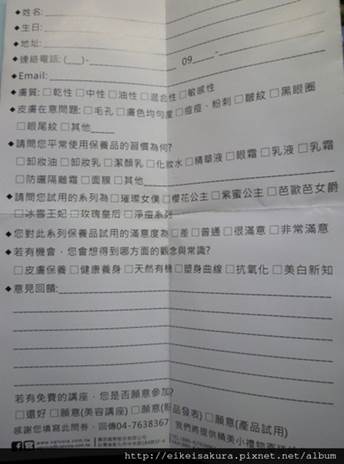 ◆姓名:
◆生日:
◆地址:
◆連絡電話: (___)- 09____-
◆Email:
◆膚質:□乾性 □中性 □油性 □混合性 □敏感性
◆皮膚在意問題:□毛孔 □膚色均勻度 □痘痘、粉刺 □皺紋 □黑眼圈
□眼尾紋 □其他
◆請問您平常使用保養品的習慣為何?
□卸妝油 □卸妝乳 □潔顏乳 □化妝水 □精華液 □眼霜 □乳液 □乳霜
□防曬隔離霜 □面膜 □其他
◆請問您試用的系列為 □璀璨女僕 □櫻花公主 □紫蜜公主 □芭歐芭女爵
□冰雪王妃 □玫瑰皇后 □淨痘系列
◆您對此系列保養品試用的滿意度為 □差 □普通 □很滿意 □非常滿意
◆若有機會,您會想得到哪方面的觀念與常識?
□皮膚保養 □健康養身 □天然有機 □塑身曲線 □抗氧化 □美白新知
◆意見回饋:
若有免費的講座,您是否願意參加?
□還好 □願意(美容講座) □願意(新品發表) □願意(產品試用)
感謝您填寫此問券,回傳04-7638367 我們將提供精美小禮物
http://eikeisakura.pixnet.net/album